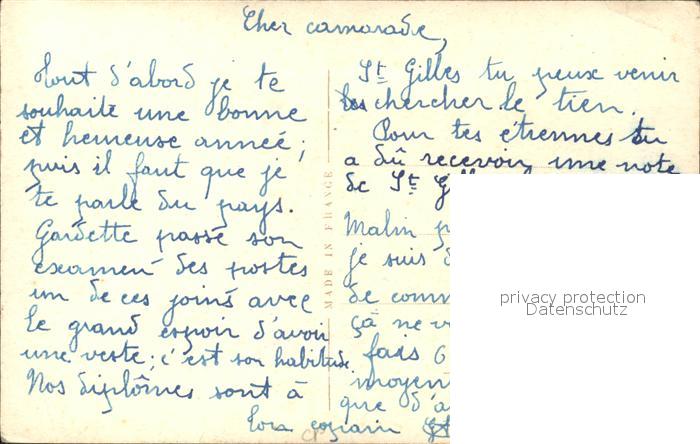 Cher camarade,
Tout d'abord je te
souhaite une bonne
et heureuse année ;
puis il faut que je
te parle du pays.
Gardette passé son
examen des postes
un de ces joins avec
le grand espoir d'avoir
une veste ; c'est son habitude.
Nos diplômes sont à
MADE IN FRANCE
St Gilles tu peux venir
chercher le tien.
Pour tes étrennes tu
a dû recevoir une note
de St
Malin
je suis
de
ça ne
fais
moyen
que d'a
Ton copain
privacy protection
Datenschutz